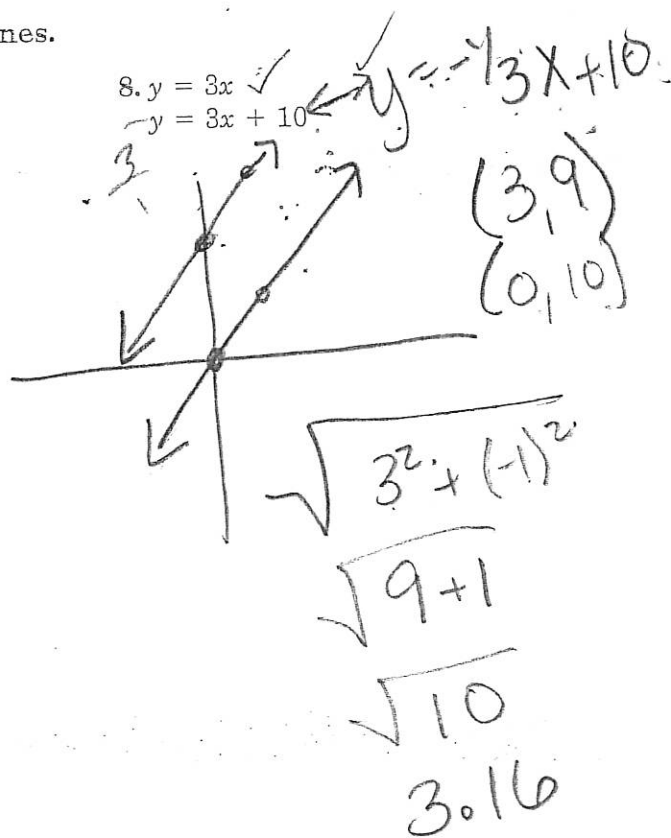 nes.
8. y = 3x ✓
y = 3x + 10
y = -1/3x+10
3
(3,9)
(0,10)
√3²+(-1)²
√9+1
√10
3.16